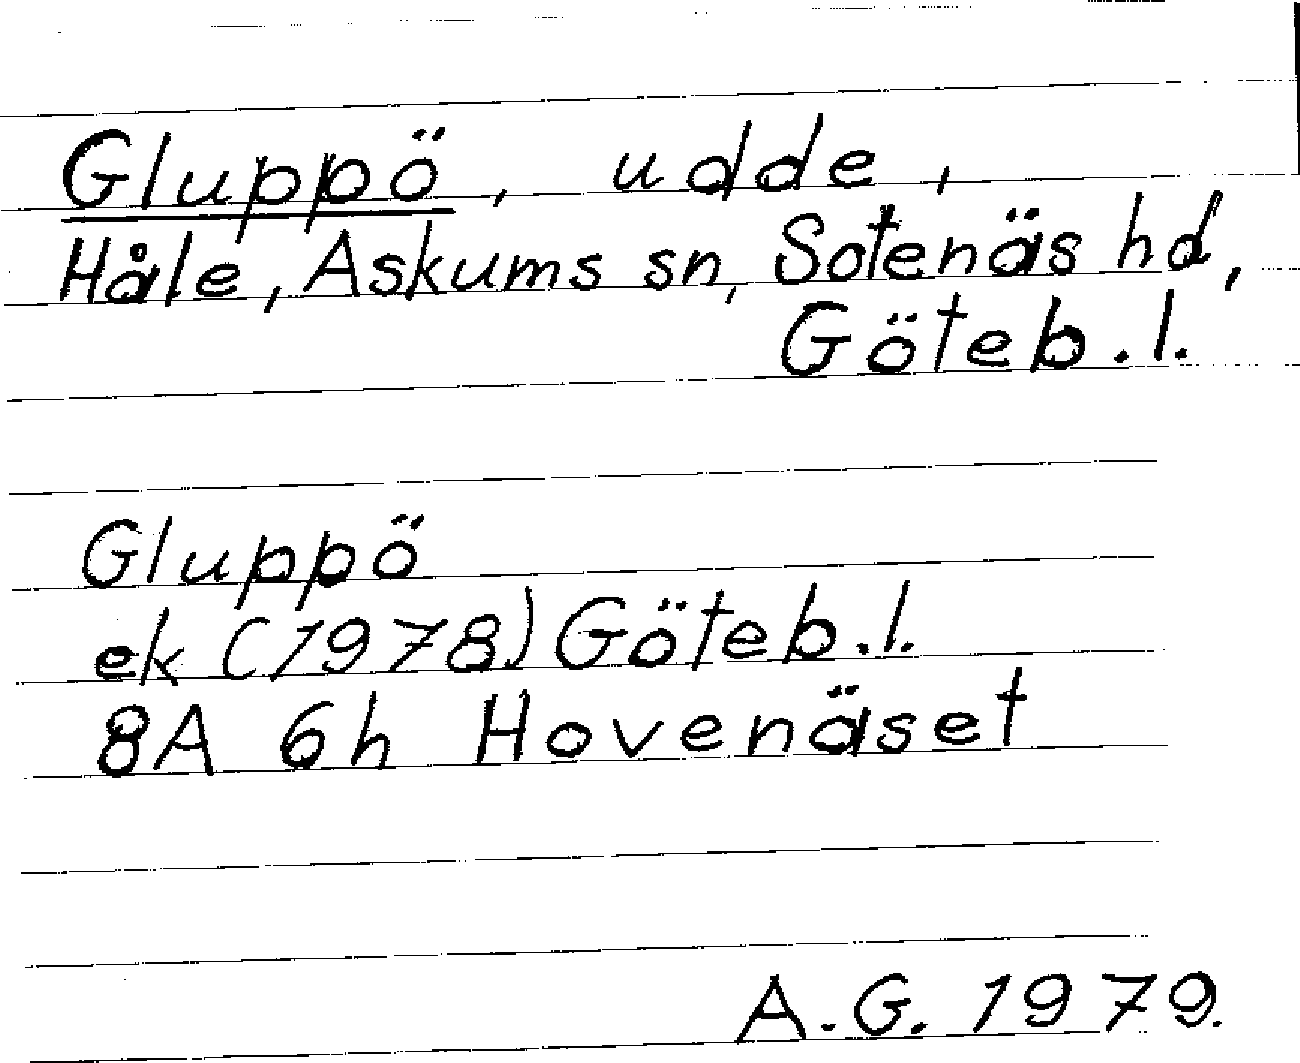 Gluppö, udde,
Håle, Askums sn, Sotenäs hd,
Göteb. l.
Gluppö
ek (1978) Göteb. l.
8A 6h Hovenäset
A. G. 1979.